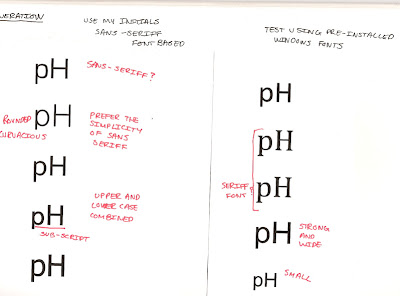 USE MY INITIALS
SANS-SERIFF
FONT BASED
pH
SANS-SERIFF?
pH
ROUNDED
CURVACIOUS
PREFER THE
SIMPLICITY
OF SANS
SERIFF
pH
pH
SUB-SCRIPT
UPPER AND
LOWER CASE
COMBINED
pH
TEST USING PRE-INSTALLED
WINDOWS FONTS
pH
pH
SERIFF
FONT
pH
pH
STRONG
AND
WIDE
pH
SMALL